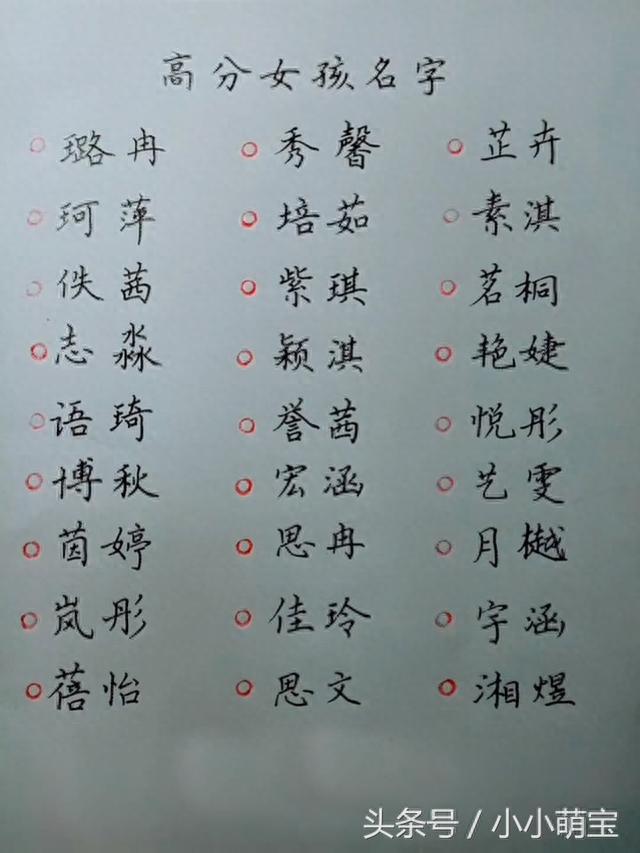 高分女孩名字
璐冉 秀馨 芷卉
珂萍 培茹 素淇
佚茜 紫琪 茗桐
志淼 颖淇 艳婕
语琦 誉茜 悦彤
博秋 宏涵 艺雯
茵婷 思冉 月樾
岚彤 佳玲 宇涵
蓓怡 思文 湘煜
头条号 / 小小萌宝